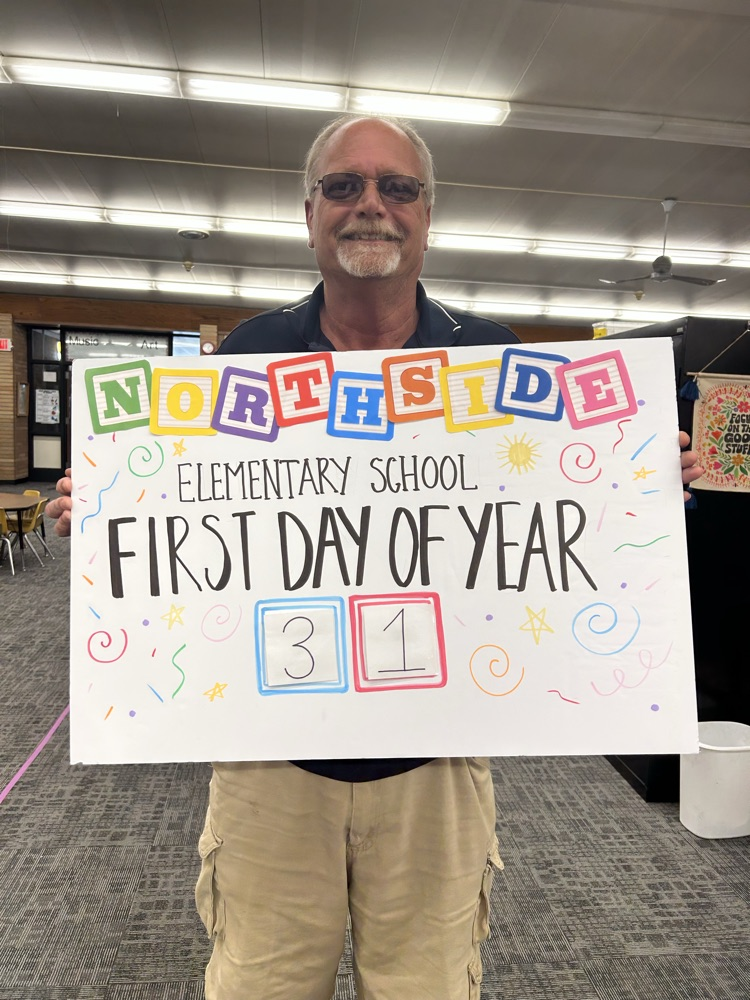 Music Art
NORTHSIDE
ELEMENTARY SCHOOL
FIRST DAY OF YEAR
31
FOCUS
ON THE
GOOD
STUFF